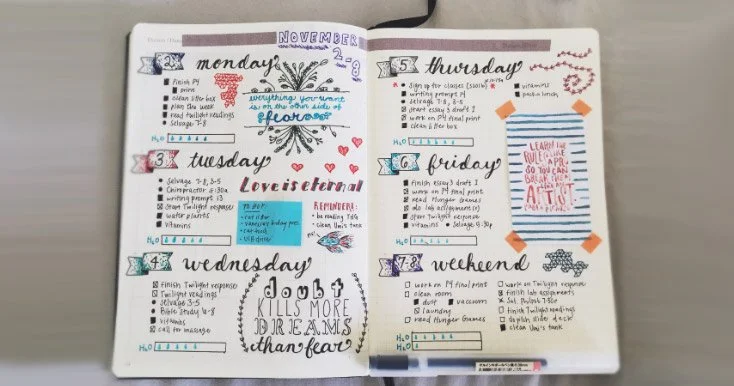 NOVEMBER
2-8
2
monday
Finish P4
print
clean litter box
plan the week
read twilight readings
Selvage 7-8
H2O
everything you want
is on the other side of
fear
3
tuesday
Selvage 7-8, 3-5
Chiropractor 6:30a
writing prompt 13
Start Twilight response
water plants
vitamins
H2O
Love is eternal
TO BUY:
cat litter
cat food
REMINDERS:
be reading
clean Uni's tank
4
wednesday
Finish Twilight response
Twilight readings
Selvage 3-5
Bible Study 6-8
vitamins
call for massage
H2O
doubt
KILLS MORE
DREAMS
than fear
5
thursday
Sign up for classes
writing prompt 14
Selvage 7-8, 3-5
start essay 3 draft 1
work on P4 final print
clean litter box
vitamins
pack lunch
H2O
LEARN THE
RULES LIKE
A PRO,
SO YOU CAN
BREAK THEM
LIKE AN
ARTIST.
6
friday
Finish essay 3 draft 1
work on P4 final print
read Hunger Games
do lab assignment(s)
start twilight response
vitamins
Selvage
H2O
7-8
weekend
work on P4 final print
clean room
dust
vacuum
laundry
read Hunger Games
work on Twilight response
finish lab assignments
finish Twilight readings
polish slide deck
clean Uni's tank
H2O